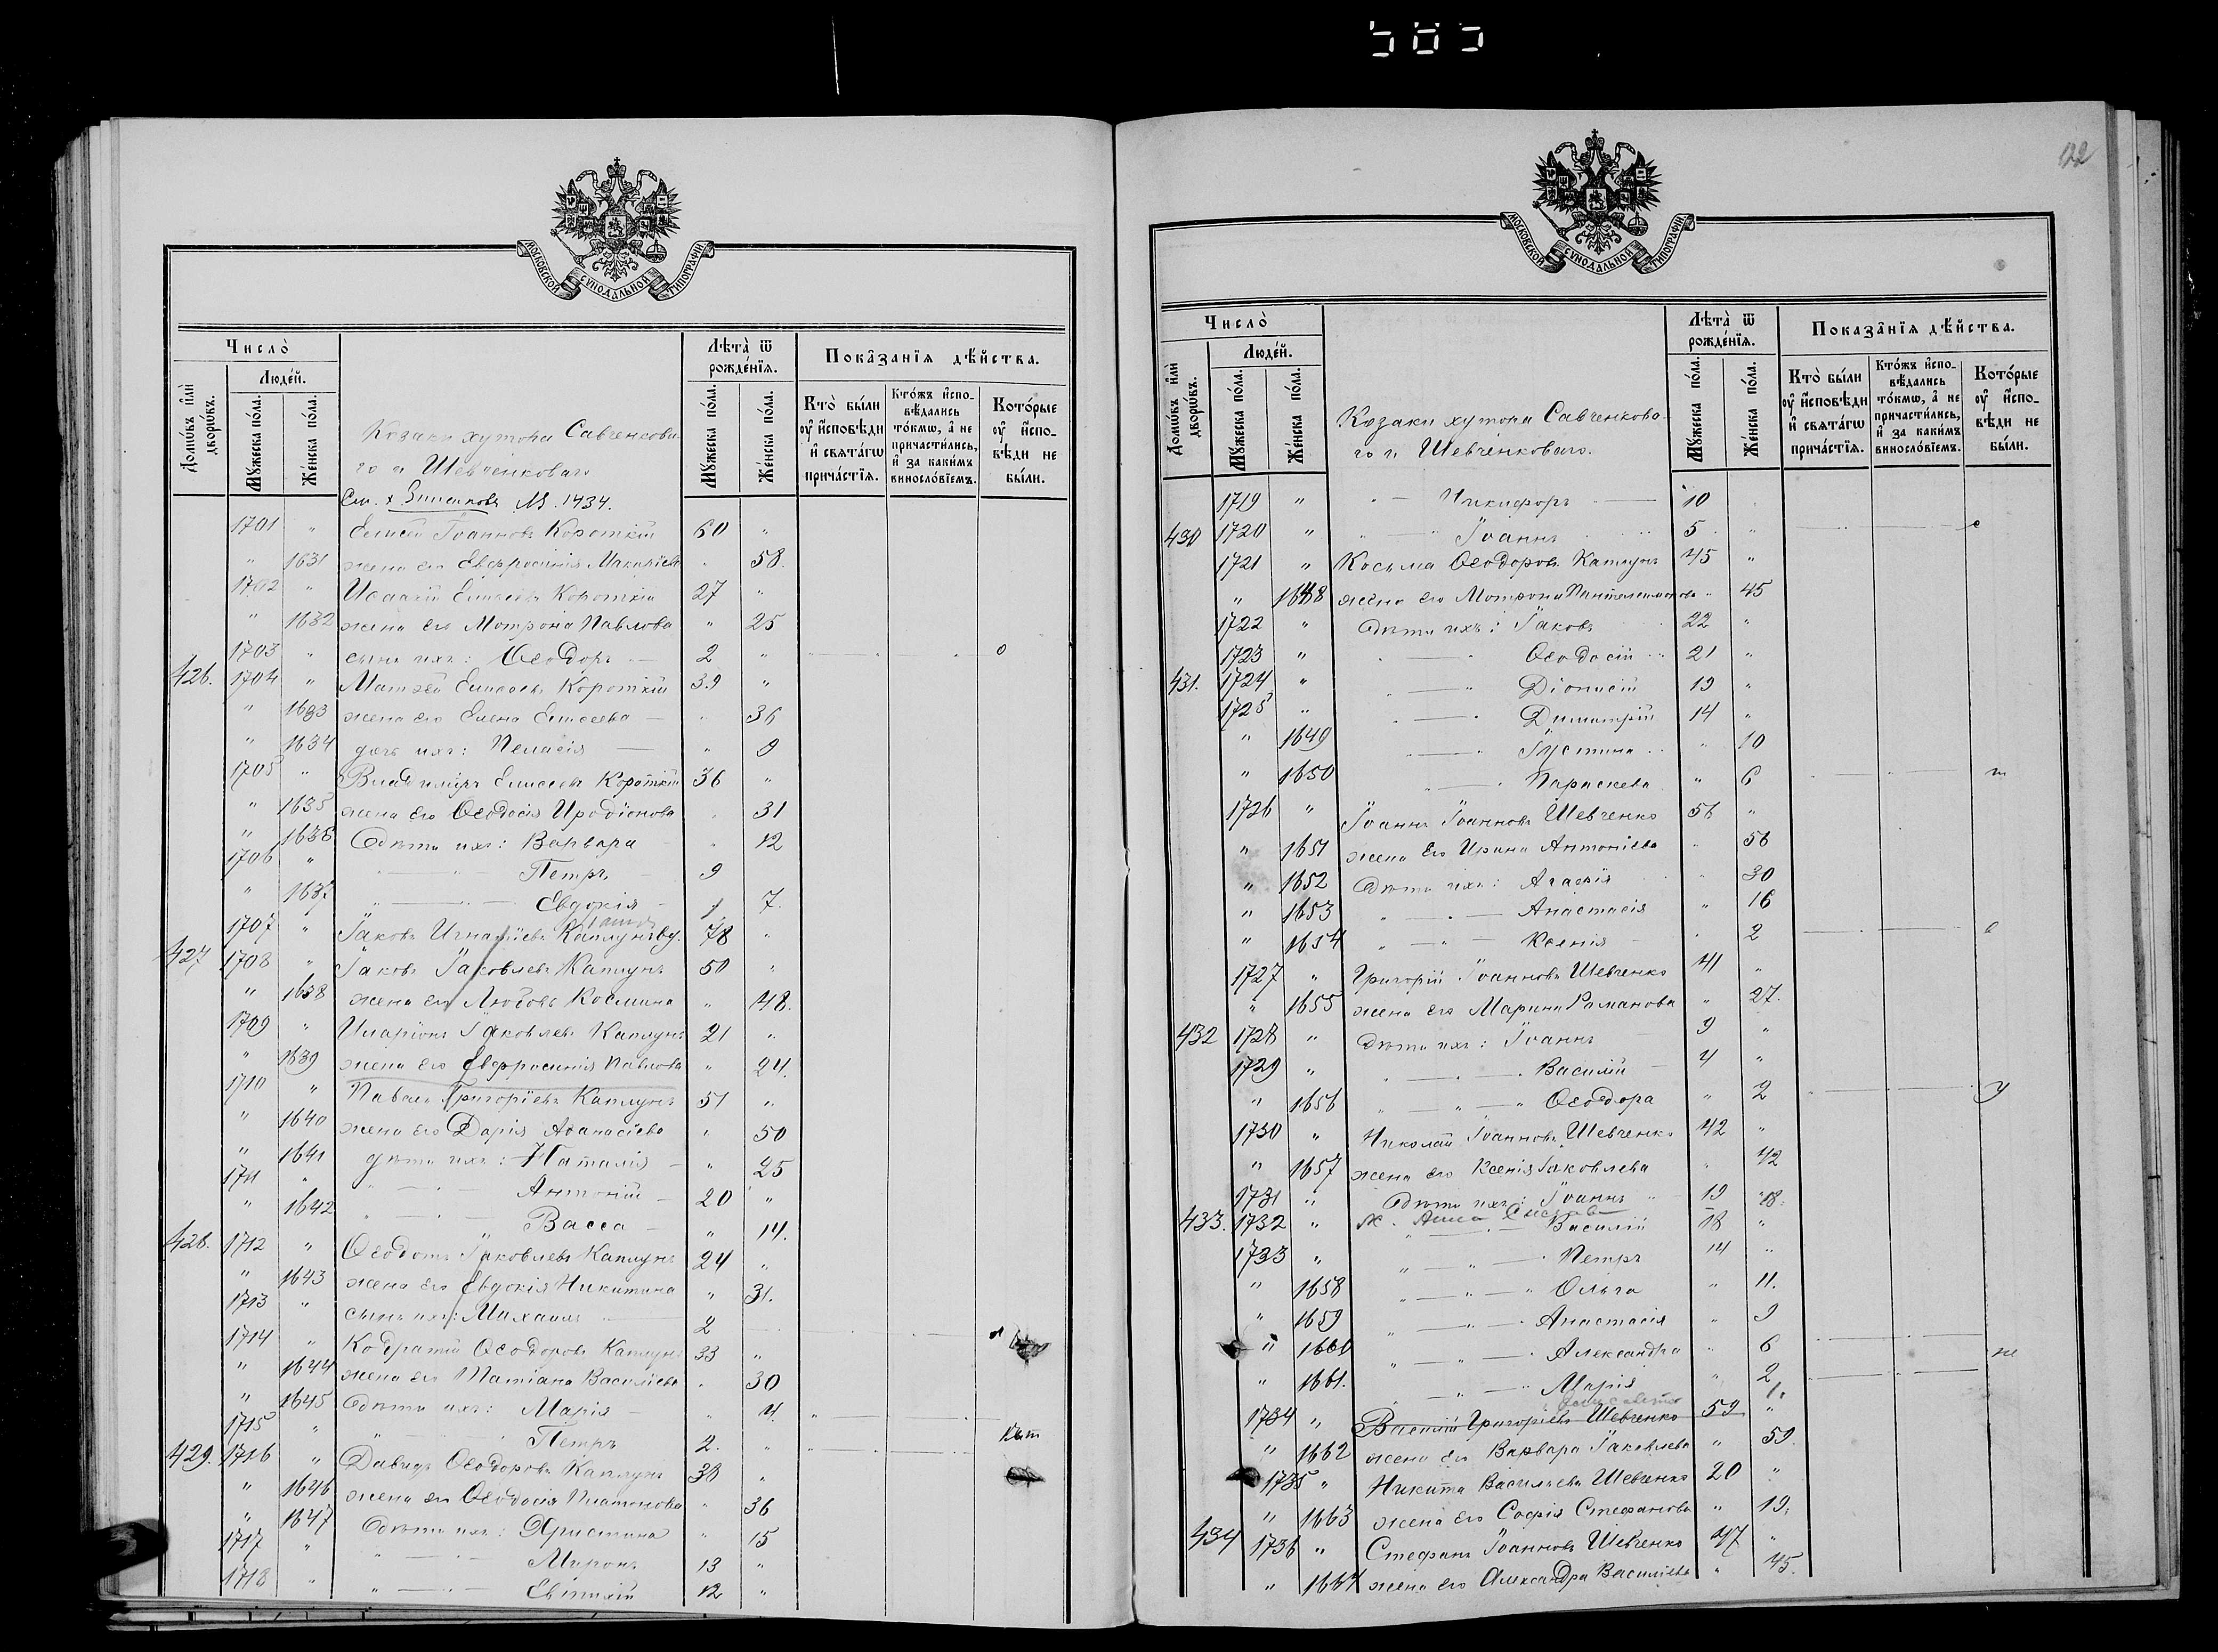 МОСКОВСКОЙ СѴНОДАЛЬНОЙ ТИПОГРАФІИ
Число̀
Людéй.
Домѡ́въ и҆лѝ дворѡ́въ.
Мꙋ́жеска по́ла.
Же́нска по́ла.
Лѣта̀ ѿ рожде́нїѧ.
Мꙋ́жеска по́ла.
Же́нска по́ла.
Показа̑нїѧ дѣ́йства.
Кто̀ бы́ли ᲂу҆ и҆сповѣди и҆ свѧта́гѡ прича́стїѧ.
Кто́жъ и҆спо-вѣдались то́кмѡ, а҆ не причасти́лись, и҆ за каки́мъ винослóвїемъ.
Кото́рые ᲂу҆ и҆спо-вѣди не бы́ли.
Козаки хутора Савченкова-
го и Шевченковаго
См. х. Зинькова № 1434.
1701 " Елисей Іоанновъ Короткій 60 "
" 1631 жена его Евфросинія Макаріева " 58.
1702 " Исаакій Елисеевъ Короткій 27 "
" 1632 жена его Мотрона Павлова " 25
1703 " сынъ ихъ: Ѳеодоръ 2 "
426. 1704 " Матѳей Елисеевъ Короткій 39 "
" 1633 жена его Елена Елисеева " 36
" 1634 дочь ихъ: Пелагія " 9
1705 " Владимиръ Елисеевъ Короткій 36 "
" 1635 жена его Ѳеодосія Иродіонова " 31
" 1636 Дѣти ихъ: Варвара " 12
1706 " Петръ 9
" 1637 Евдокія 7.
1707 " Іаковъ Игнатіевъ Каплунъ вд. 78 "
427 1708 " Іаковъ Іаковлевъ Каплунъ 50 "
" 1638 жена его Любовь Космина " 48.
1709 " Иларіонъ Іаковлевъ Каплунъ 21 "
" 1639 жена его Евфросинія Павлова " 24.
1710 " Павелъ Григоріевъ Каплунъ 51 "
" 1640 жена его Дарія Аѳанасіева " 50
" 1641 дѣти ихъ: Наталія " 25
1711 " Антоній 20 "
" 1642 Васса " 14.
428. 1712 " Ѳеодотъ Іаковлевъ Каплунъ 24 "
" 1643 жена его Евдокія Никитина " 31.
1713 " сынъ ихъ: Михаилъ 2
1714 " Кодратій Ѳеодоровъ Каплунъ 33 "
" 1644 жена его Татіана Василіева " 30
" 1645 Дѣти ихъ: Марія " 4.
1715 " Петръ 2. "
429. 1716 " Давидъ Ѳеодоровъ Каплунъ 38 "
" 1646 жена его Ѳеодосія Платонова " 36
" 1647 Дѣти ихъ: Христина " 15
1717 " Миронъ 13 "
1718 " Евтихій 12 "
122
МОСКОВСКОЙ СѴНОДАЛЬНОЙ ТИПОГРАФІИ
Число̀
Людéй.
Домѡ́въ и҆лѝ дворѡ́въ.
Мꙋ́жеска по́ла.
Же́нска по́ла.
Лѣта̀ ѿ рожде́нїѧ.
Мꙋ́жеска по́ла.
Же́нска по́ла.
Показа̑нїѧ дѣ́йства.
Кто̀ бы́ли ᲂу҆ и҆сповѣди и҆ свѧта́гѡ прича́стїѧ.
Кто́жъ и҆спо-вѣдались то́кмѡ, а҆ не причасти́лись, и҆ за каки́мъ винослóвїемъ.
Кото́рые ᲂу҆ и҆спо-вѣди не бы́ли.
Козаки хутора Савченкова-
го и Шевченковаго.
1719 " Никифоръ 10
430 1720 " Іоаннъ 5 "
1721 " Косьма Ѳеодоровъ Каплунъ 45 "
" 1648 жена его Мотрона Пантелеимонова " 45
1722 " Дѣти ихъ: Іаковъ 22 "
1723 " Ѳеодосій 21 "
431. 1724 " Діонисій 19 "
1725 " Димитрій 14 "
" 1649 Іустина " 10
" 1650 Параскева " 6
1726 " Іоаннъ Іоанновъ Шевченко 56 "
" 1651 жена его Ирина Антоніева " 56
" 1652 Дѣти ихъ: Агафія " 30
" 1653 Анастасія " 16
" 1654 Ксенія " 2
1727 " Григорій Іоанновъ Шевченко 41 "
" 1655 жена его Марина Романова " 27.
432 1728 " Дѣти ихъ: Іоаннъ 9 "
1729 " Василій 4 "
" 1656 Ѳеодора " 2
1730 " Николай Іоанновъ Шевченко 42 "
" 1657 жена его Ксенія Іаковлева " 42
1731 " Дѣти ихъ: Іоаннъ 19 "
ж. Анна 18.
433. 1732 " Василій 18 "
1733 " Петръ 14 "
" 1658 Ольга " 11.
" 1659 Анастасія " 9
" 1660 Александра " 6
" 1661. Марія " 2
Елисавета 1.
1734 " Василій Григоріевъ Шевченко 59 "
" 1662 жена его Варвара Іаковлева " 59.
1735 " Никита Васильевъ Шевченко 20 "
" 1663 жена его Софія Стефанова " 19.
434 1736 " Стефанъ Іоанновъ Шевченко 47 "
" 1664 жена его Александра Василіева " 45.